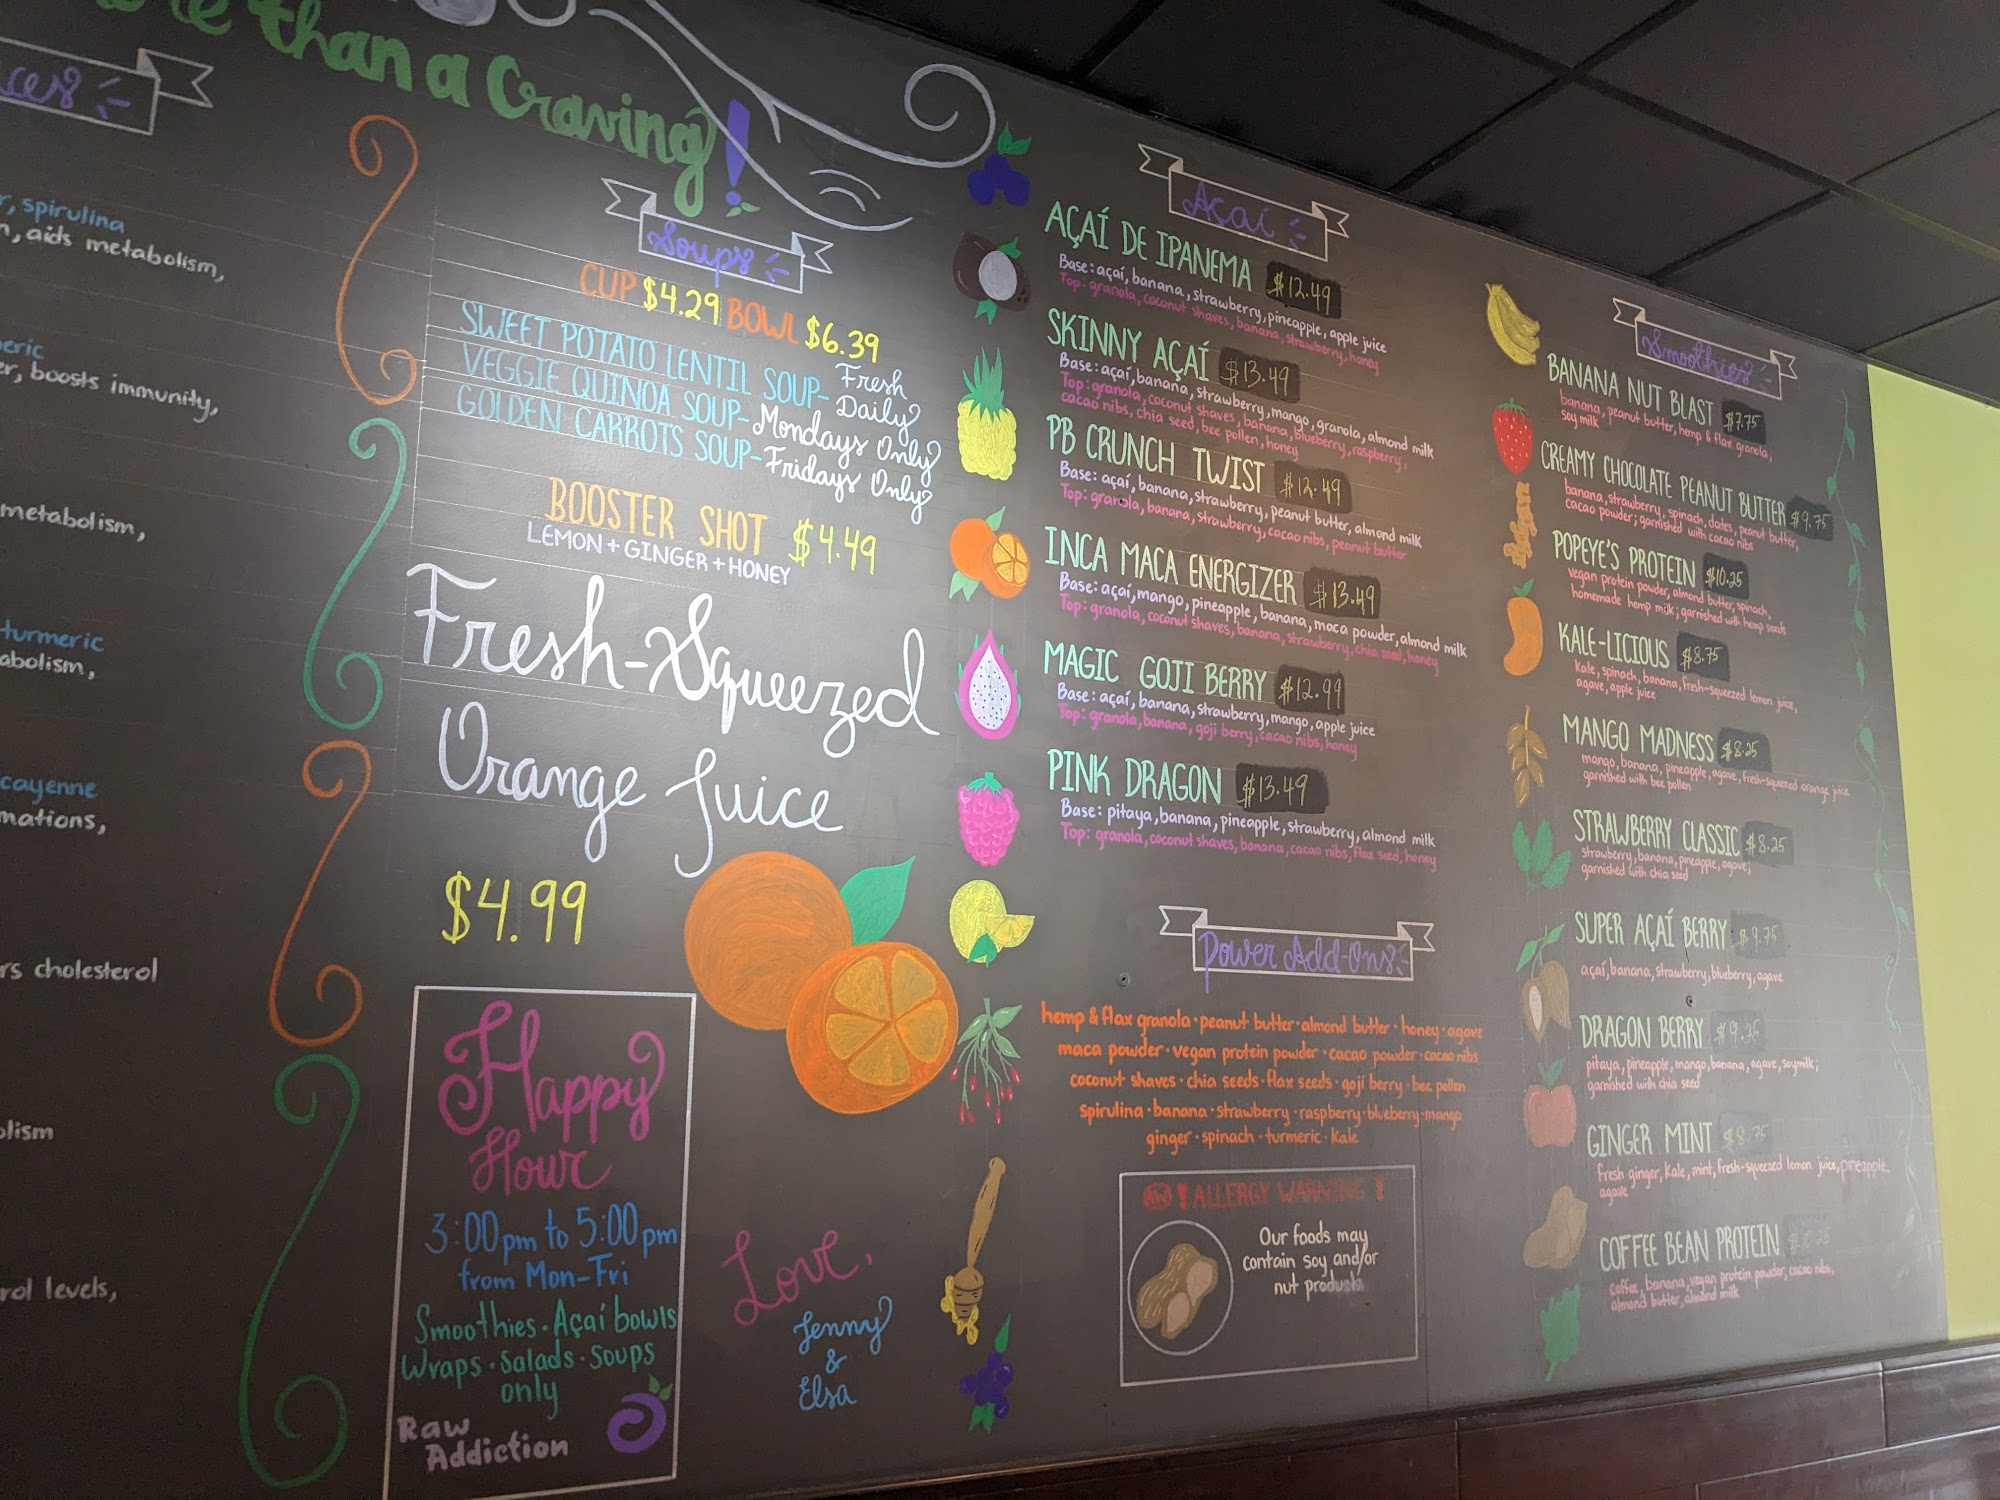 than a Craving!
, spirulina
, aids metabolism,
, boosts immunity,
metabolism,
turmeric
cayenne
cholesterol
levels,
Soups
CUP $4.29 BOWL $6.39
SWEET POTATO LENTIL SOUP- Fresh Daily
VEGGIE QUINOA SOUP- Mondays Only
GOLDEN CARROTS SOUP- Fridays Only
BOOSTER SHOT $4.49
LEMON + GINGER + HONEY
Fresh-Squeezed
Orange Juice
$4.99
Happy
Hour
3:00pm to 5:00pm
from Mon-Fri
Smoothies · Açaí bowls
Wraps · Salads · Soups
only
Raw
Addiction
Love,
Jenny
&
Elsa
Açaí
AÇAÍ DE IPANEMA $12.49
Base: açaí, banana, strawberry, pineapple, apple juice
Top: granola, coconut shaves, banana, strawberry, honey
SKINNY AÇAÍ $13.49
Base: açaí, banana, strawberry, mango, granola, almond milk
Top: granola, coconut shaves, banana, blueberry, raspberry,
cacao nibs, chia seed, bee pollen, honey
PB CRUNCH TWIST $12.49
Base: açaí, banana, strawberry, peanut butter, almond milk
Top: granola, banana, strawberry, cacao nibs, peanut butter
INCA MACA ENERGIZER $13.49
Base: açaí, mango, pineapple, banana, maca powder, almond milk
Top: granola, coconut shaves, banana, strawberry, chia seed, honey
MAGIC GOJI BERRY $12.99
Base: açaí, banana, strawberry, mango, apple juice
Top: granola, banana, goji berry, cacao nibs, honey
PINK DRAGON $13.49
Base: pitaya, banana, pineapple, strawberry, almond milk
Top: granola, coconut shaves, banana, cacao nibs, flax seed, honey
Power Add-Ons
hemp & flax granola · peanut butter · almond butter · honey · agave
maca powder · vegan protein powder · cacao powder · cacao nibs
coconut shaves · chia seeds · flax seeds · goji berry · bee pollen
spirulina · banana · strawberry · raspberry · blueberry · mango
ginger · spinach · turmeric · kale
! ALLERGY WARNING !
Our foods may
contain soy and/or
nut products
Smoothies
BANANA NUT BLAST $7.75
banana, peanut butter, hemp & flax granola,
soy milk
CREAMY CHOCOLATE PEANUT BUTTER $9.75
banana, strawberry, spinach, dates, peanut butter,
cacao powder; garnished with cacao nibs
POPEYE'S PROTEIN $10.25
vegan protein powder, almond butter, spinach,
homemade hemp milk; garnished with hemp seeds
KALE-LICIOUS $8.75
kale, spinach, banana, fresh-squeezed lemon juice,
agave, apple juice
MANGO MADNESS $8.25
mango, banana, pineapple, agave, fresh-squeezed orange juice
garnished with bee pollen
STRAWBERRY CLASSIC $8.25
strawberry, banana, pineapple, agave;
garnished with chia seed
SUPER AÇAÍ BERRY $9.75
açaí, banana, strawberry, blueberry, agave
DRAGON BERRY $9.25
pitaya, pineapple, mango, banana, agave, soymilk;
garnished with chia seed
GINGER MINT $8.75
fresh ginger, kale, mint, fresh-squeezed lemon juice, pineapple,
agave
COFFEE BEAN PROTEIN
coffee, banana, vegan protein powder, cacao nibs,
almond butter, almond milk